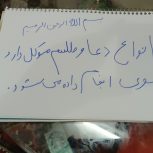 بسم الله الرحمن الرحیم
انواع دعا و طلسم موکل دارد
سوی انجام داده می شود.